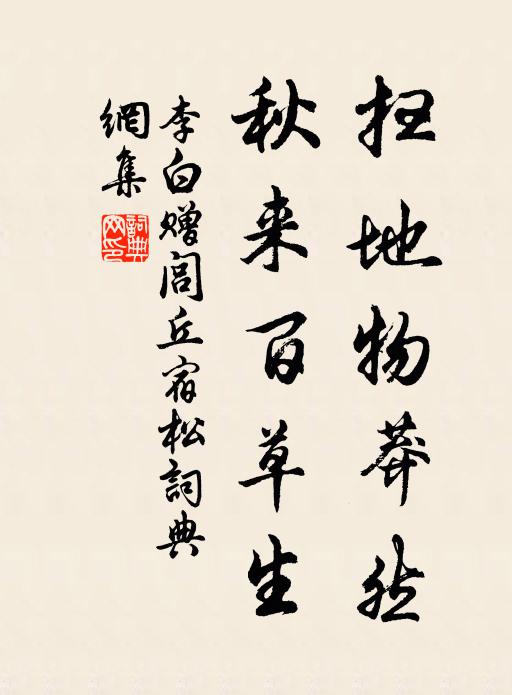 扫地物莽然
秋来百草生
李白赠闾丘宿松詞典
網集
詞典網印